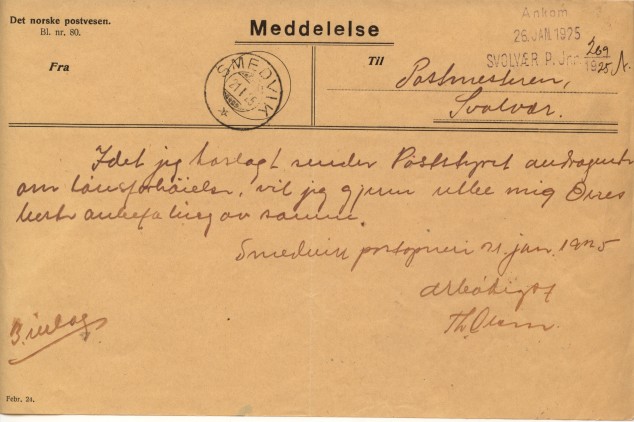 Det norske postvesen.
Bl. nr. 80.
Meddelelse
Ankom
26.JAN.1925
SVOLVÆR P. Jnr. 269
1925 A.
Fra
SMEDVIK
21.1.25
Til
Postmesteren,
Svolvær.
Idet jeg har lagt sender Poststyret andragende
om lønsforhøielse, vil jeg gjerne utbe mig Deres
beste anbefaling av samme.
Smedvik postopneri 21. jan. 1925
ærbødigst
Th. Olsen.
3. indlæg
Febr. 24.